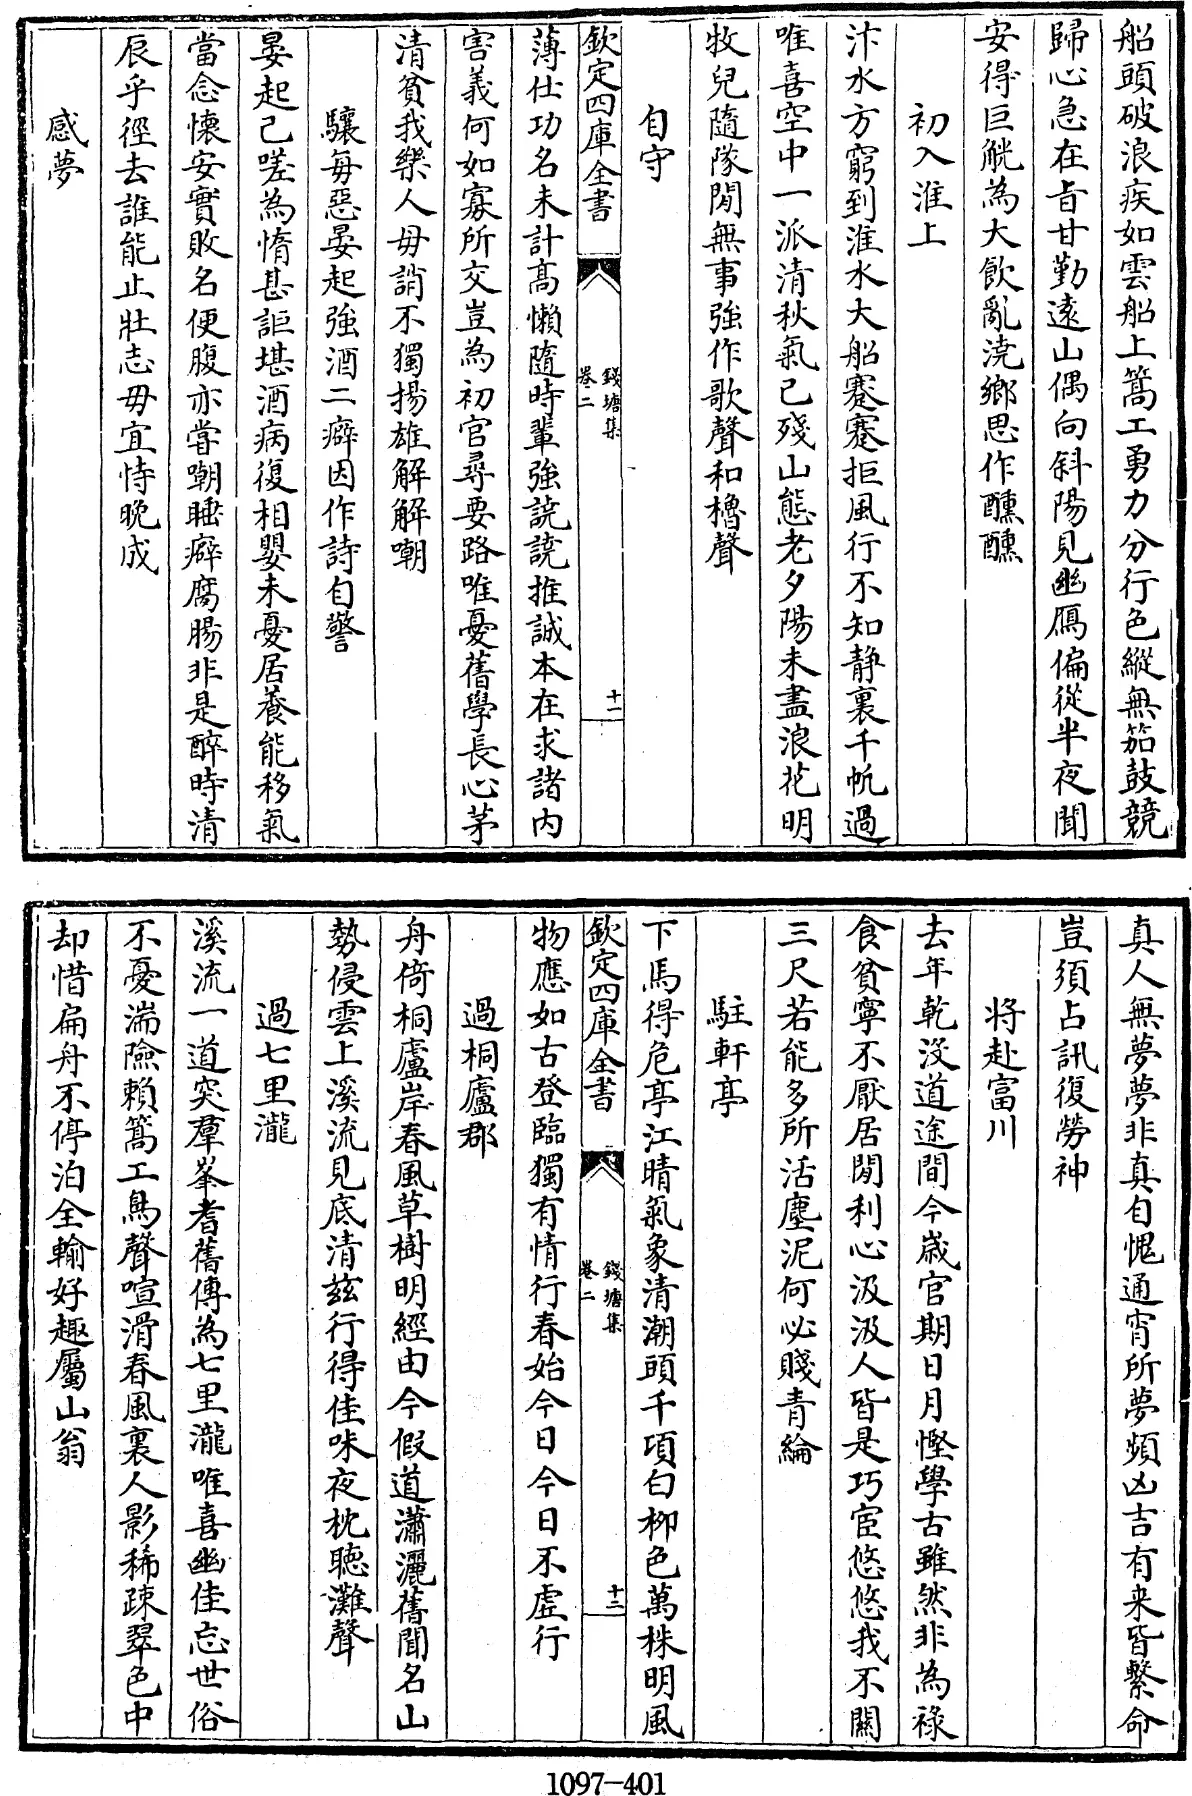 船頭破浪疾如雲船上篙工勇力分行色縱無笳鼓競
歸心急在旨甘勤遠山偶向斜陽見幽鴈偏從半夜聞
安得巨觥為大飲亂澆鄉思作醺醺
初入淮上
汴水方窮到淮水大船蹇蹇拒風行不知静裏千帆過
唯喜空中一派清秋氣已殘山態老夕陽未盡浪花明
牧兒隨隊閒無事強作歌聲和櫓聲
自守
欽定四庫全書
錢塘集
卷二
十一
薄仕功名未計高懶隨時輩強譊譊推誠本在求諸内
害義何如寡所交豈為初官尋要路唯憂舊學長心茅
清貧我樂人毋誚不獨揚雄解解嘲
驤每惡晏起強酒二癖因作詩自警
晏起已嗟為惰甚詎堪酒病復相嬰未憂居養能移氣
當念懷安實敗名便腹亦嘗嘲睡癖腐腸非是醉時清
辰乎徑去誰能止壯志毋宜恃晚成
感夢
真人無夢夢非真自愧通宵所夢頻凶吉有来皆繫命
豈須占訊復勞神
将赴富川
去年乾没道途間今歳官期日月慳學古雖然非為禄
食貧寧不厭居閒利心汲汲人皆是巧宦悠悠我不關
三尺若能多所活塵泥何必賤青綸
駐軒亭
下馬得危亭江晴氣象清潮頭千項白柳色萬株明風
欽定四庫全書
錢塘集
卷二
十二
物應如古登臨獨有情行春始今日今日不虚行
過桐廬郡
舟倚桐廬岸春風草樹明經由今假道瀟灑舊聞名山
勢侵雲上溪流見底清兹行得佳味夜枕聴灘聲
過七里瀧
溪流一道突羣峯耆舊傳為七里瀧唯喜幽佳忘世俗
不憂湍險賴篙工鳥聲喧滑春風裏人影稀疎翠色中
却惜扁舟不停泊全輸好趣屬山翁
1097-401